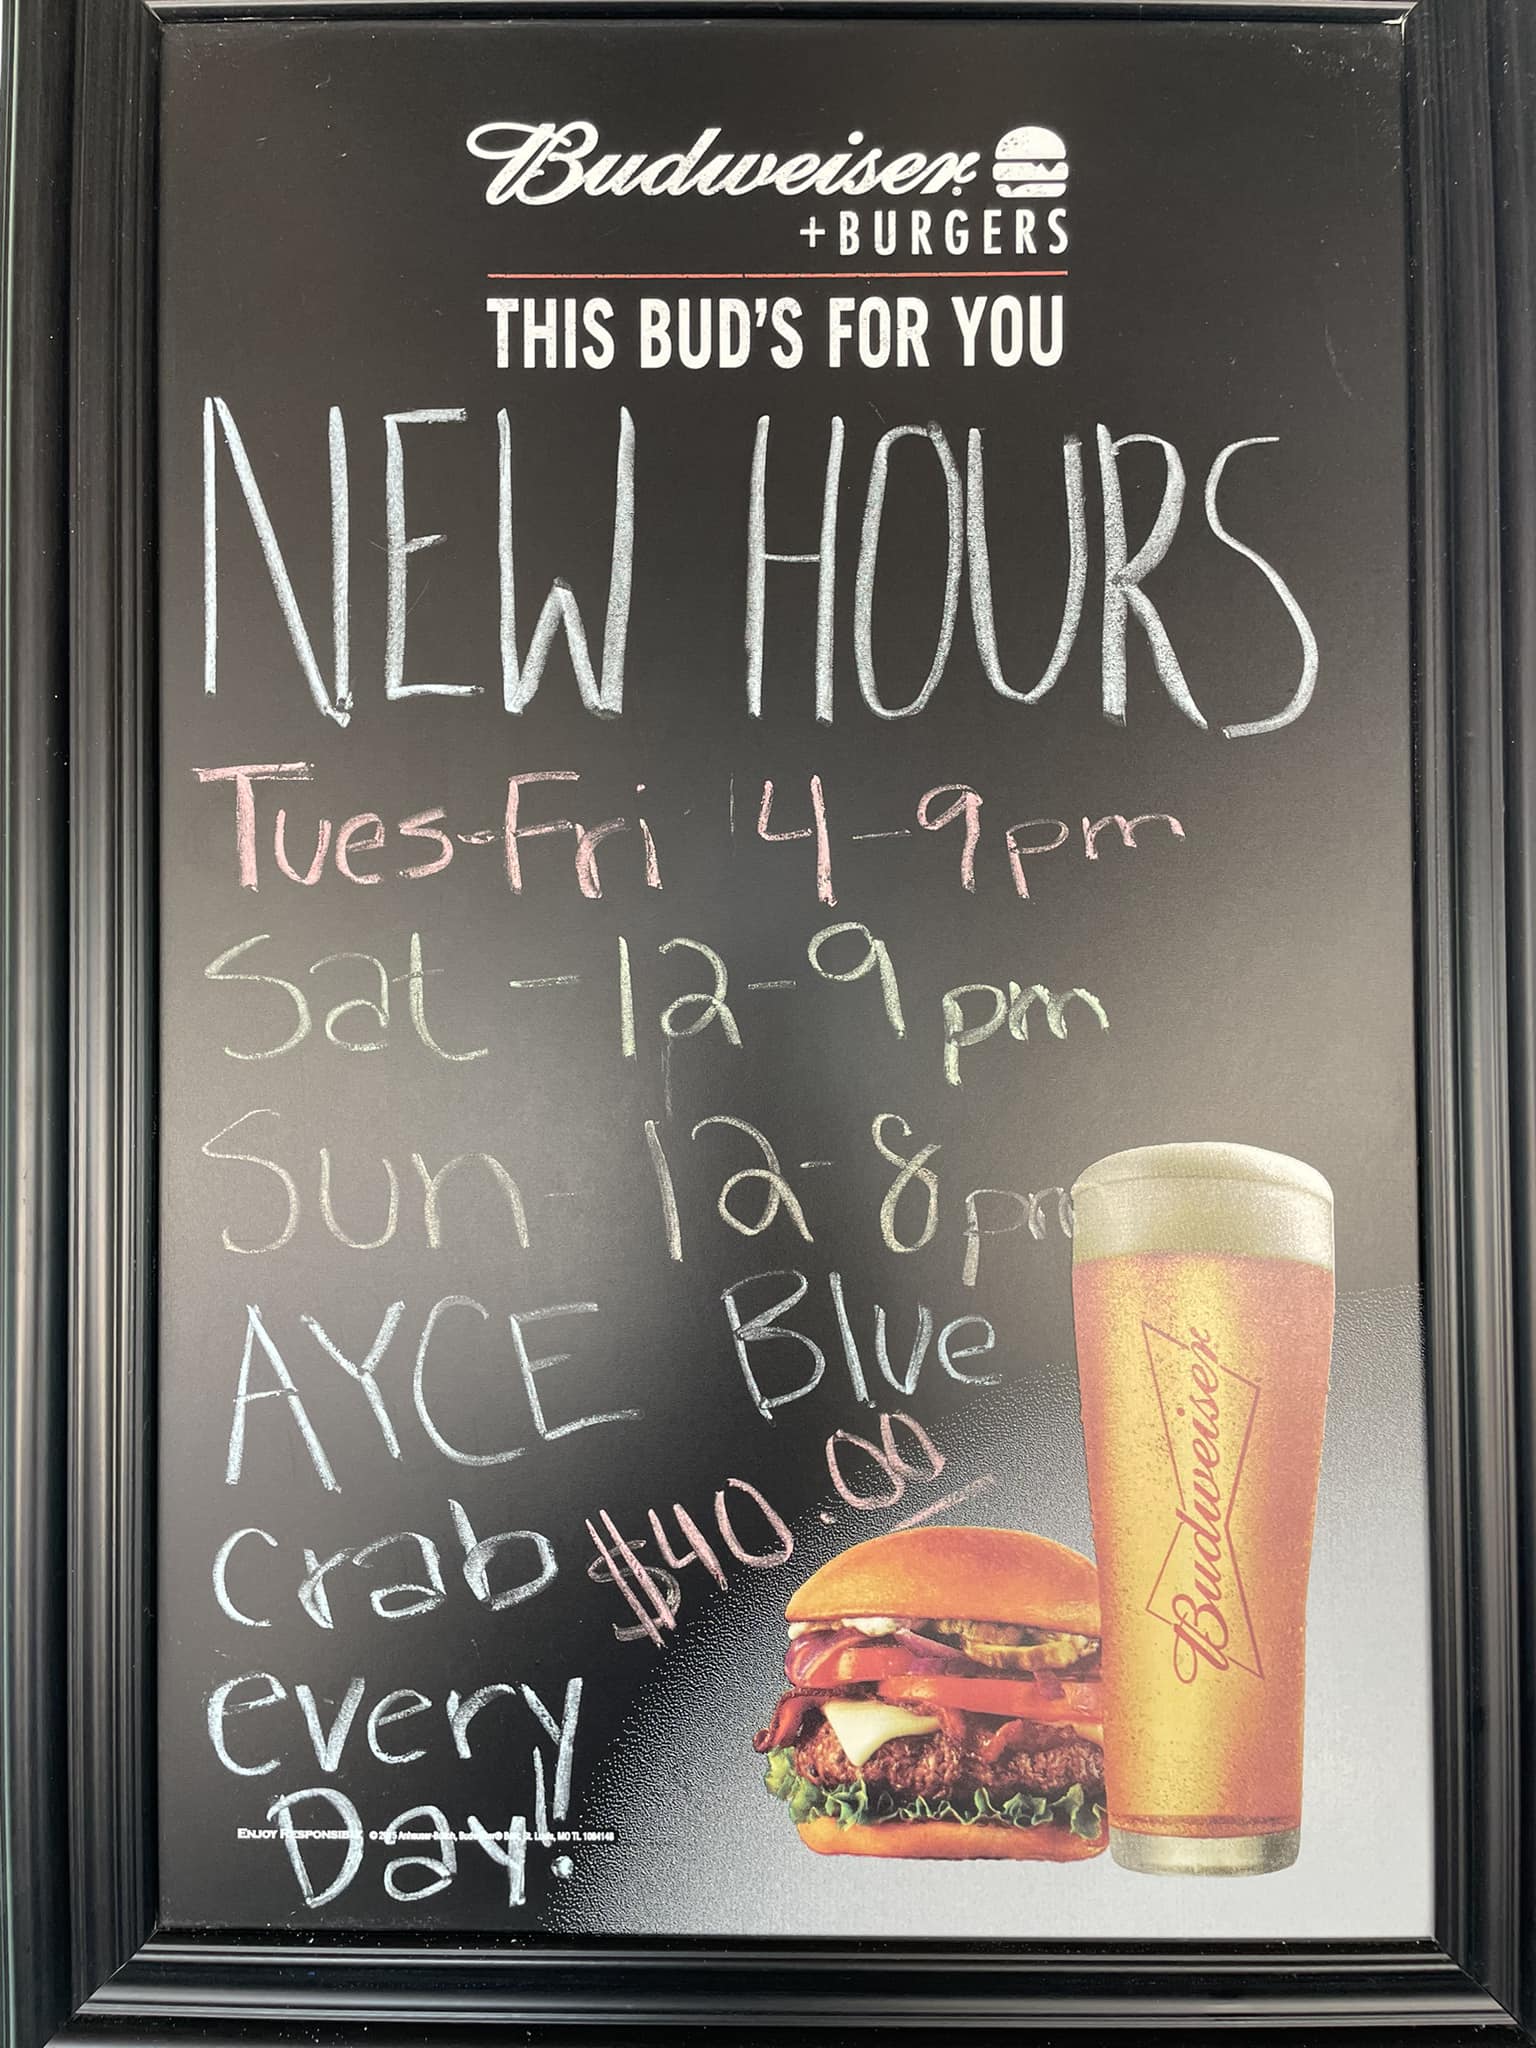 Budweiser
+BURGERS
THIS BUD'S FOR YOU
NEW HOURS
Tues-Fri 4-9pm
Sat - 12-9pm
Sun - 12-8pm
AYCE Blue
Crab $40.00
every
Day!!
ENJOY RESPONSIBLY © Anheuser-Busch, Budweiser® Beer, St. Louis, MO
Budweiser